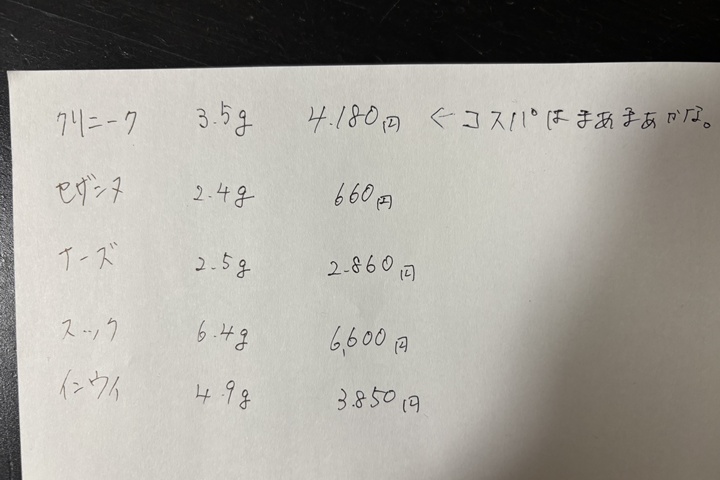 クリニーク 3.5g 4.180円 ←コスパはまあまあかな。
セザンヌ 2.4g 660円
ナーズ 2.5g 2.860円
スック 6.4g 6,600円
インウイ 4.9g 3.850円